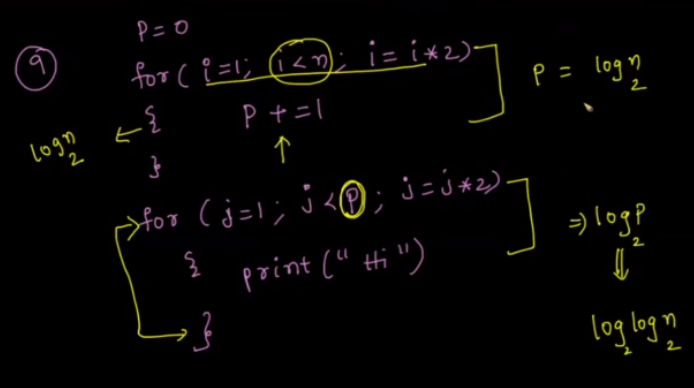 9
P = 0
for ( i=1; i<n; i = i*2)
{ P += 1
}
P = log₂n
log₂n
for ( j=1; j<P; j=j*2)
{ print (" Hi ")
}
⇒ log₂P
⇓
log₂log₂n